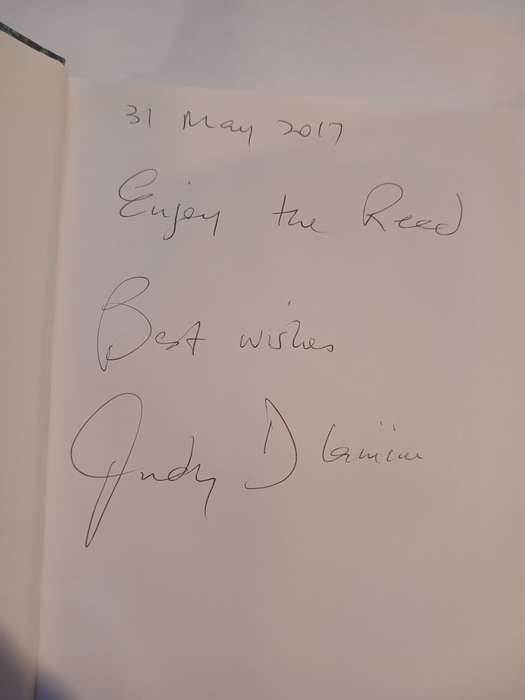 31 May 2017
Enjoy the Read
Best wishes
Judy Dlamini